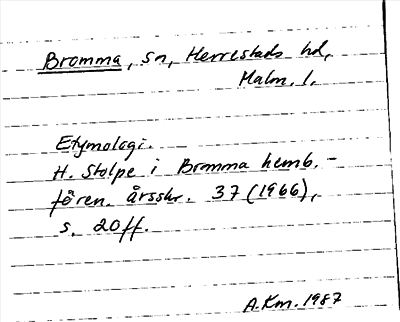 Bromma, sn, Herrestads hd,
Malm. l.
Etymologi.
H. Stolpe i Bromma hemb.-
fören. årsskr. 37 (1966),
s. 20 ff.
A.Km. 1987